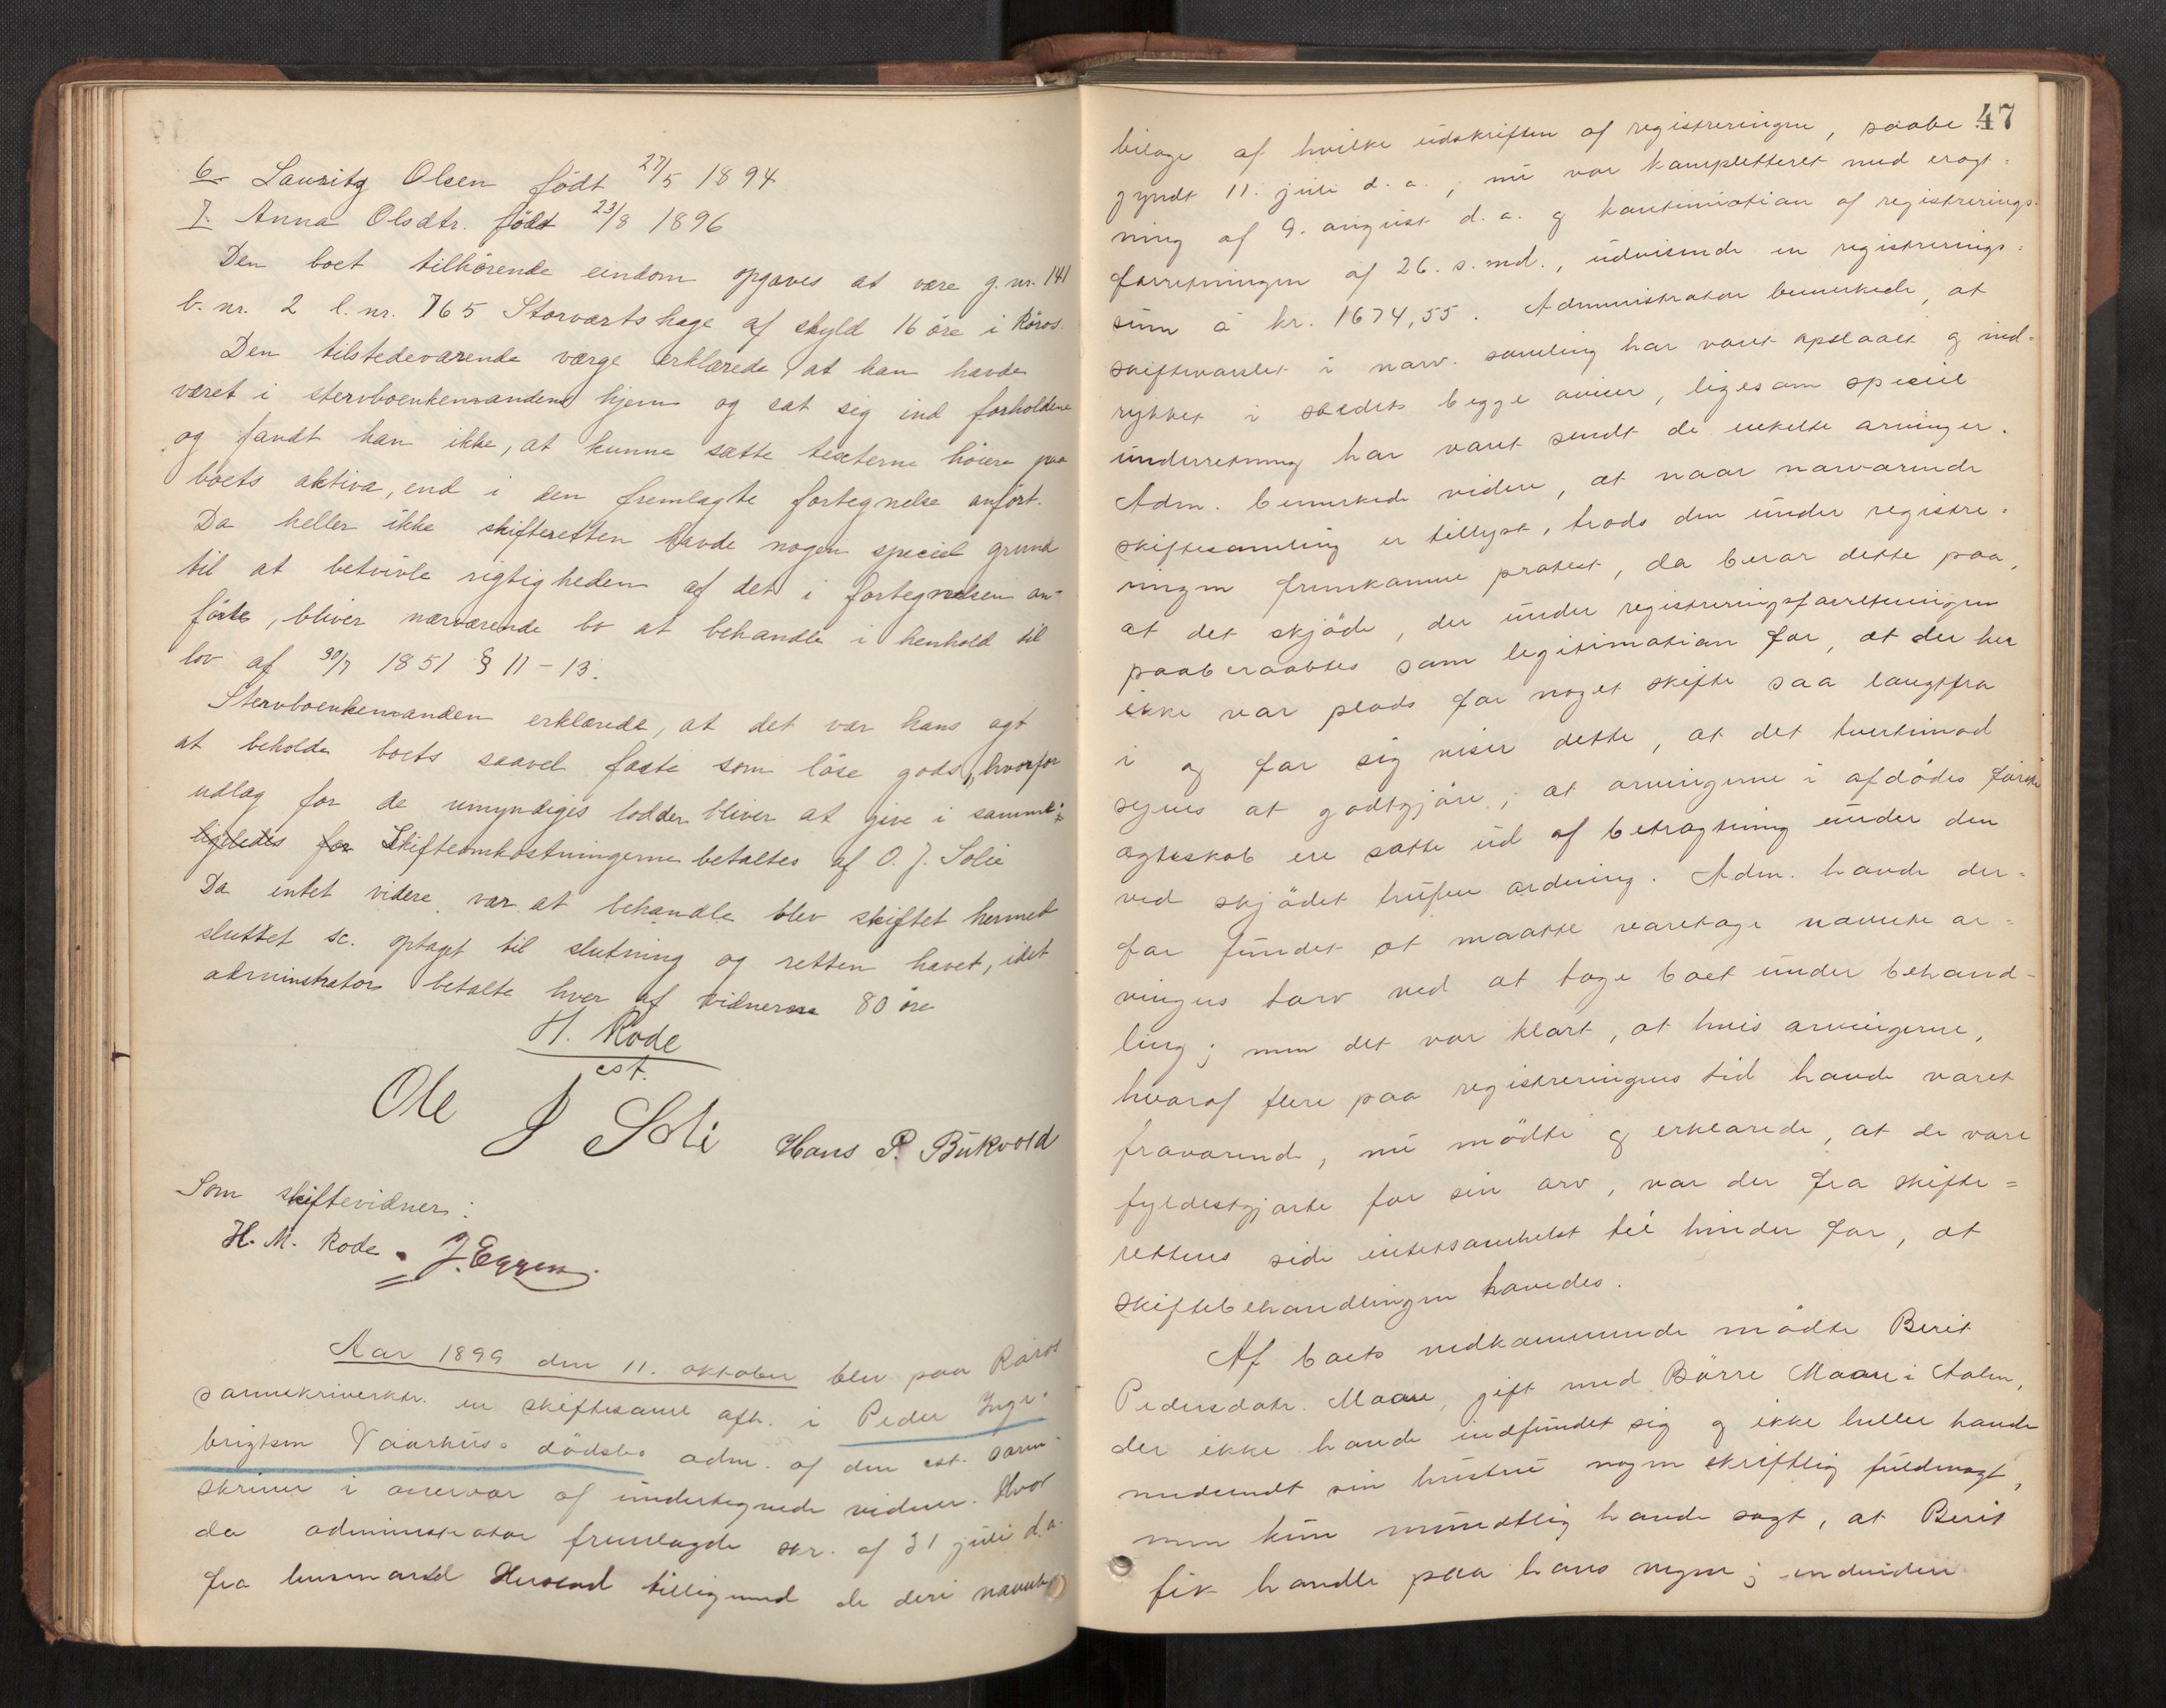 6. Lauritz Olsen født 27/5 1894
7. Anna Olsdtr. født 23/8 1896
Den boet tilhørende eiendom opgaves at være g.nr. 141
b.nr. 2 l.nr. 765 Storvartshage af skyld 16 øre i Røros.
Den tilstedeværende værge erklærede, at han havde
været i stervboenkemandens hjem og sat sig ind forholdene
og fandt han ikke, at kunne sætte taxterne høiere paa
boets aktiva, end i den fremlagte fortegnelse anført.
Da heller ikke skifteretten havde nogen speciel grund
til at betvivle rigtigheden af det i fortegnelsen an-
førte, bliver nærværende bo at behandle i henhold til
lov af 30/7 1851 § 11-13.
Stervboenkemanden erklærede, at det var hans agt
at beholde boets saavel faste som løse gods, hvorfor
udlæg for de umyndiges lodder bliver at give i samme
ligeledes for Skifteomkostningerne betaltes af O. J. Solie
Da intet videre var at behandle blev skiftet hermed
sluttet sc. optaget til slutning og retten hævet, idet
administrator betalte hver af vidnerne 80 øre
H. Rode
cst.
Ole J Soli Hans P. Bukvold
Som skiftevidner:
H. M. Rode. J. Eggen.
Aar 1899 den 11. oktober blev paa Røros
sorenskriverktr. en skiftesaml afh. i Peder Inge-
brigtsen Vaarhus's dødsbo adm. af den cst. soren-
skriver i overvær af undertegnede vidner. Hvor
da administrator fremlagde skr. af 31 juli d.a.
fra lensmand tilligemed de deri nævnte
47
bilage af hvilke udskriften af registreringen, paabe-
gyndt 11. juli d. a., nu var kompletteret med eragt-
ning af 9. august d. a. og kontinuation af registrerings-
forretningen af 26. s. md., udvisende en registrerings-
sum a kr. 1674,55. Administrator bemerkede, at
skiftevarslet i nærv. samling har været opslaaet og ind-
rykket i stedets begge aviser, ligesom speciel
underretning har været sendt de enkelte arvinger.
Adm. bemerkede videre, at naar nærværende
skiftesamling er tillyst, trods den under registre-
ringen fremkomne protest, da beror dette paa,
at det skjøde, der under registreringsforretningen
paaberaabtes som legitimation for, at der her
ikke var plads for noget skifte saa langtfra
i og for sig viser dette, at det tvertimod
synes at godtgjøre, at arvingerne i afdødes første
ægteskab ere satte ud af betragtning under den
ved skjødet trufne ordning. Adm. havde der-
for fundet at maatte varetage nævnte ar-
vingers tarv ved at tage boet under behand-
ling; men det var klart, at hvis arvingerne,
hvoraf flere paa registreringens tid havde været
fraværende, nu mødte og erklærede, at de vare
fyldestgjorte for sin arv, var der fra skifte-
rettens side intetsomhelst til hinder for, at
skiftebehandlingen hævedes.
Af boets vedkommende mødte Berit
Pedersdatr. Moan, gift med Børre Moan i Aalen,
der ikke havde indfundet sig og ikke heller havde
medsendt sin hustru nogen skriftlig fuldmagt,
men kun mundtlig havde sagt, at Berit
fik handle paa hans vegne; endvidere